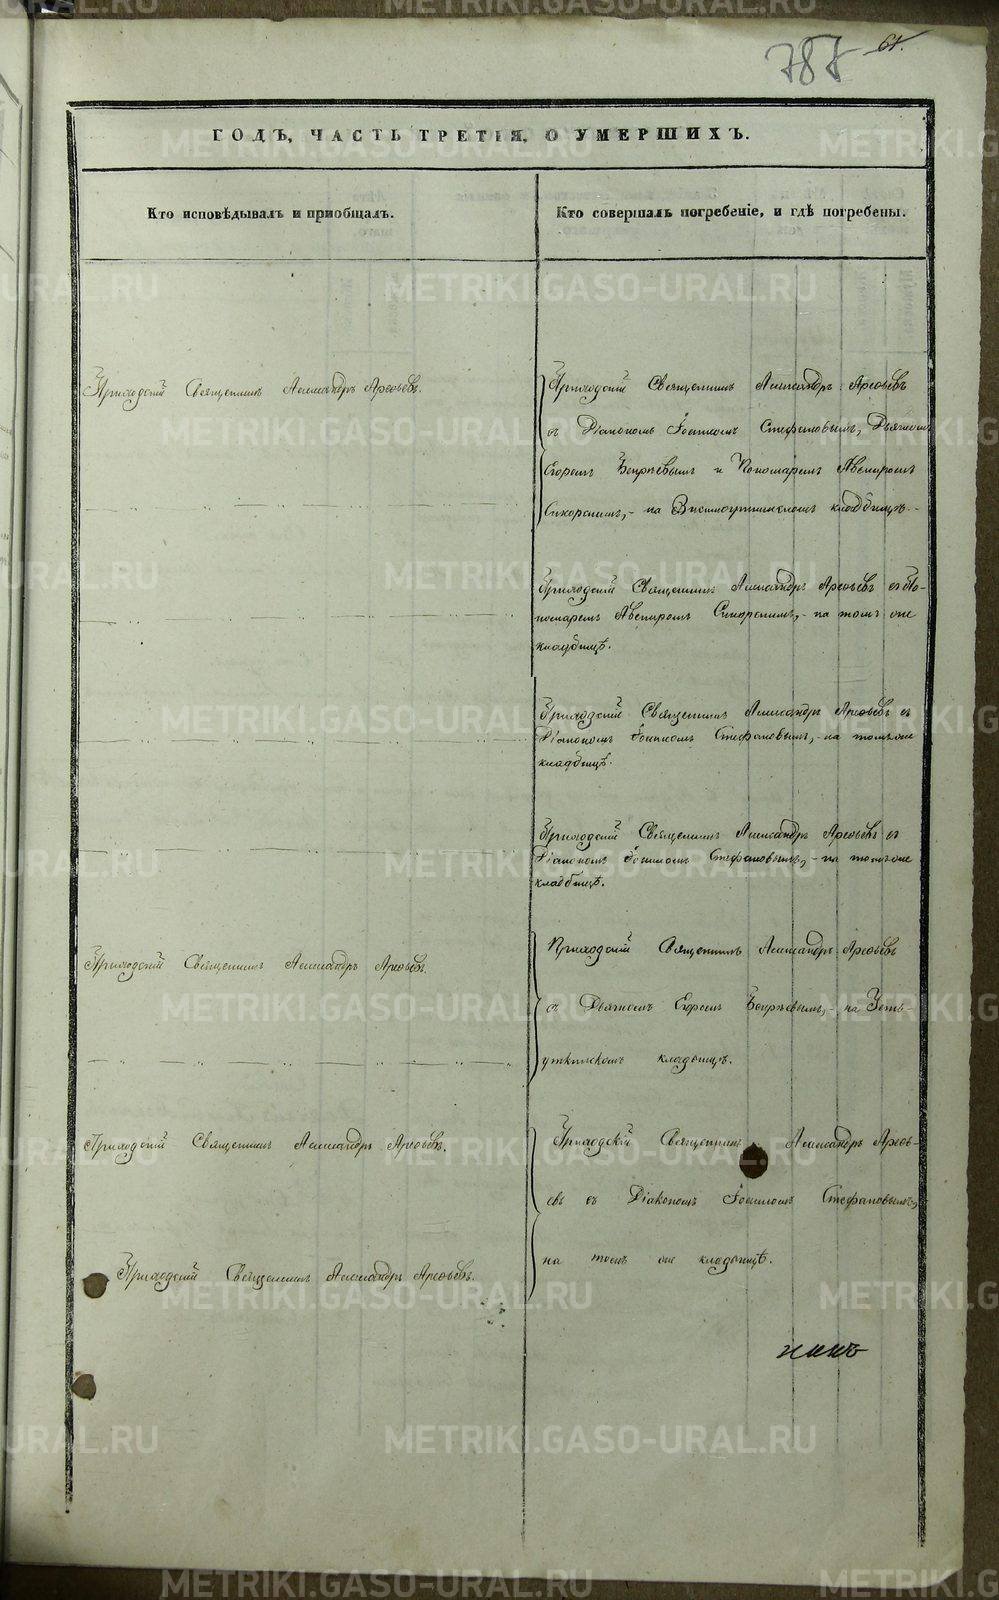 787
61.
ГОДЪ, ЧАСТЬ ТРЕТІЯ, О УМЕРШИХЪ.
Кто исповѣдывалъ и пріобщалъ.
Кто совершалъ погребеніе, и гдѣ погребены.
Приходскій Священникъ Александръ Арефьевъ.
Приходскій Священникъ Александръ Арефьевъ
съ Діакономъ Іоанномъ Стефановымъ, Дьячкомъ
Егоромъ и Пономаремъ Авениромъ
на кладбищѣ.
Приходскій Священникъ Александръ Арефьевъ съ По-
номаремъ Авениромъ на томъ же
кладбищѣ.
Приходскій Священникъ Александръ Арефьевъ съ
Діакономъ Іоанномъ Стефановымъ, на томъ же
кладбищѣ.
Приходскій Священникъ Александръ Арефьевъ съ
Діакономъ Іоанномъ Стефановымъ, на томъ же
кладбищѣ.
Приходскій Священникъ Александръ Арефьевъ.
Приходскій Священникъ Александръ Арефьевъ
съ Дьячкомъ Егоромъ на Усть-
уткинскомъ кладбищѣ.
Приходскій Священникъ Александръ Арефьевъ.
Приходскій Священникъ Александръ Арефь-
евъ съ Діакономъ Іоанномъ Стефановымъ,
на томъ же кладбищѣ.
Приходскій Священникъ Александръ Арефьевъ.
METRIKI.GASO-URAL.RU